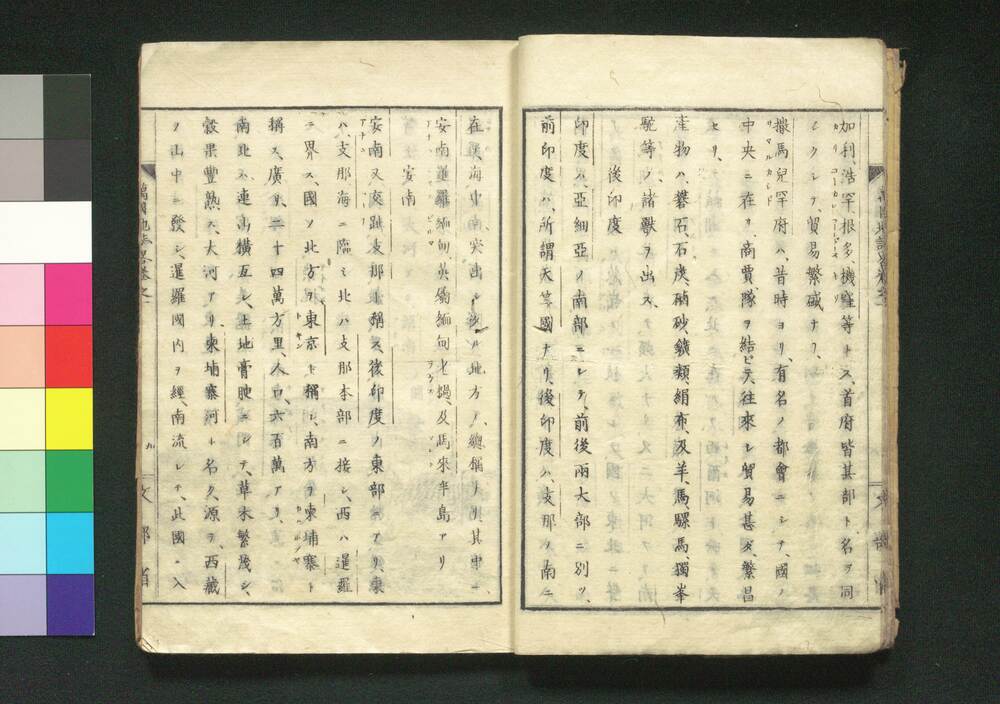 加利、浩罕、根多、機窪等トス、首府皆其部ト名ヲ同
シクシテ、貿易繁盛ナリ、
撒馬兒罕府ハ、昔時ヨリ、有名ノ都會ニシテ、國ノ
中央ニ在リ、商賈、隊ヲ結ビテ往來シ貿易甚ダ、繁昌
セリ、
產物ハ、礬石、石炭、硇砂、鑛類、絹布、及羊、馬、騾馬、獨峯
駝等ノ、諸獸ヲ出ス、
後印度
印度ハ、亞細亞ノ南部ニシテ、前後兩大部ニ別ツ、
前印度ハ、所謂天竺國ナリ、後印度ハ、支那ノ南ニ
在リ、海中ニ突出シタル地方ノ、總稱ナリ、其中ニ
安南、暹羅、緬甸、英領緬甸、老撾、及馬來半島アリ
安南
安南又交趾支那ト稱ス、後印度ノ東部ニアリ、東
ハ、支那海ニ臨ミ、北ハ支那本部ニ接シ、西ハ暹羅
ニ界ス、國ノ北方ヲ、東京ト稱シ、南方ヲ、東埔寨ト
稱ス、廣サ、二十四萬方里、人口、六百萬アリ、
南北ニ、連山橫亙シ、土地膏腴ニシテ、草木繁茂シ、
穀果豐熟ス、大河アリ、柬埔寨河ト名ク、源ヲ、西藏
ノ山中ニ發シ、暹羅國内ヲ經、南流シテ、此國ニ入
文部省